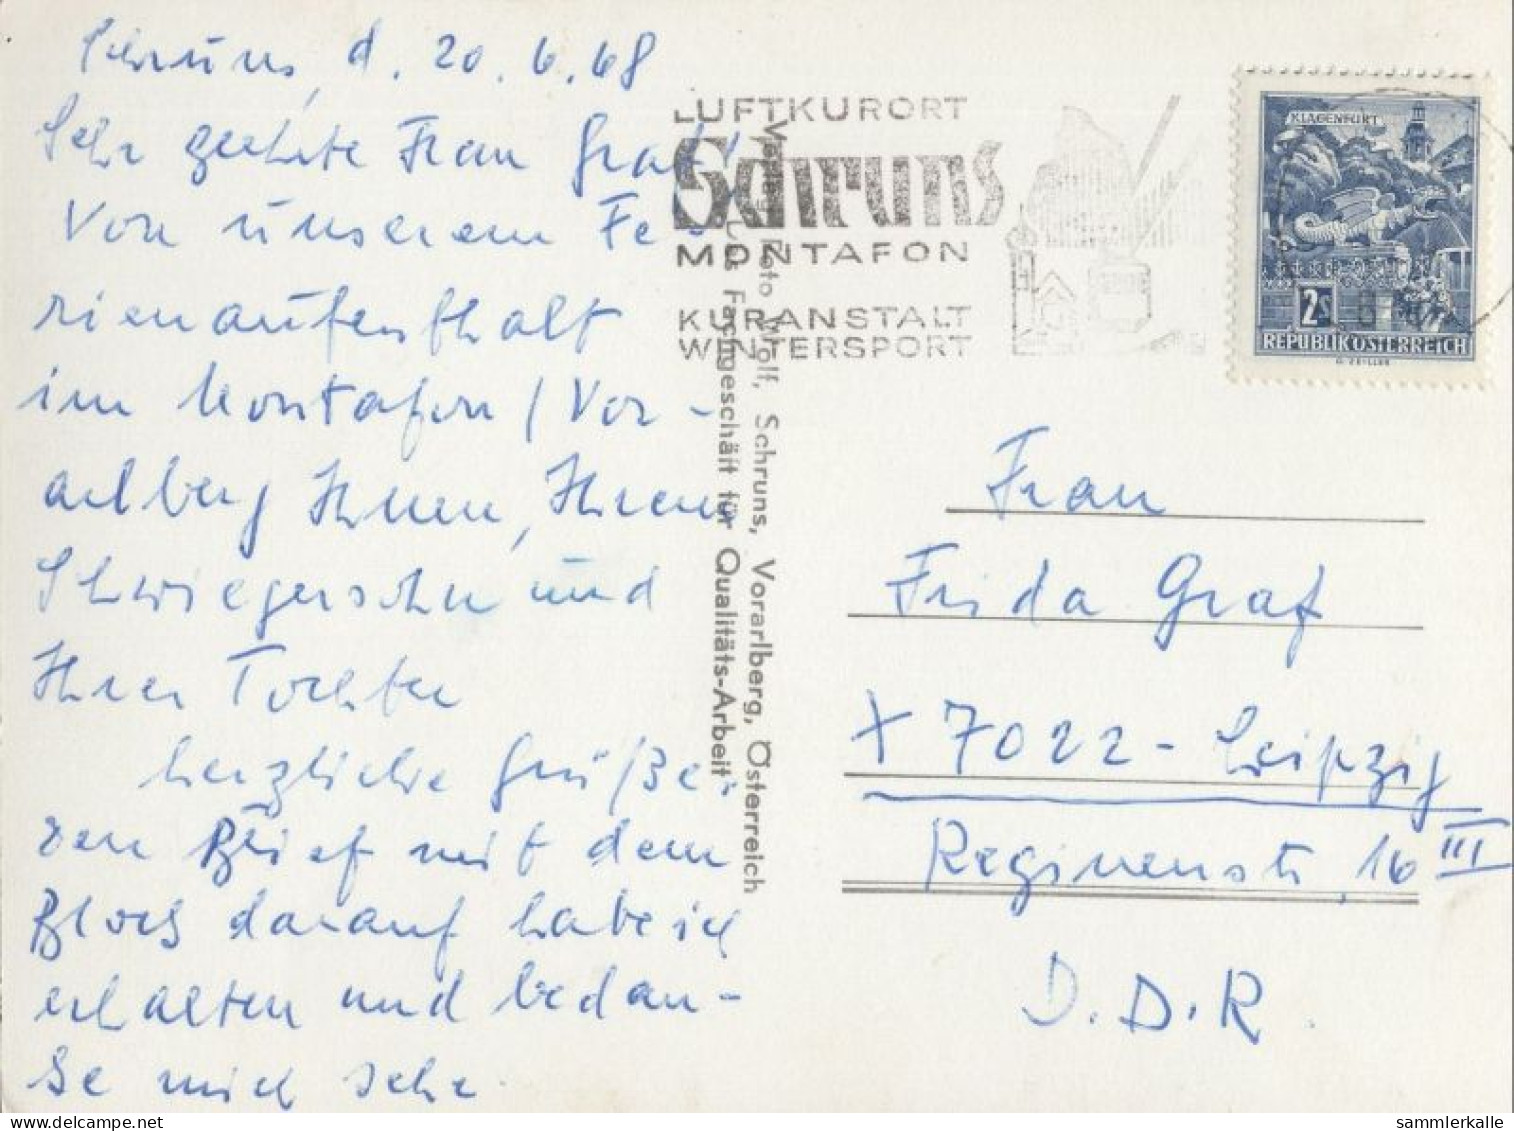 Schruns, d. 20.6.68
Sehr geehrte Frau Graf!
Von unserem Fe-
rienaufenthalt
im Montafon / Vor-
arlberg Ihnen, Ihrem
Schwiegersohn und
Ihrer Tochter
herzliche Grüße.
den Brief mit dem
Block darauf habe ich
erhalten und bedan-
ke mich sehr
LUFTKURORT
Schruns
MONTAFON
KURANSTALT
WINTERSPORT
Foto Wolf, Schruns, Vorarlberg, Österreich
Das Fachgeschäft für Qualitäts-Arbeit
KLAGENFURT
2s
REPUBLIK ÖSTERREICH
Frau
Frida Graf
X 7022 - Leipzig
Reginenstr. 16 III
D.D.R.
sammlerkalle